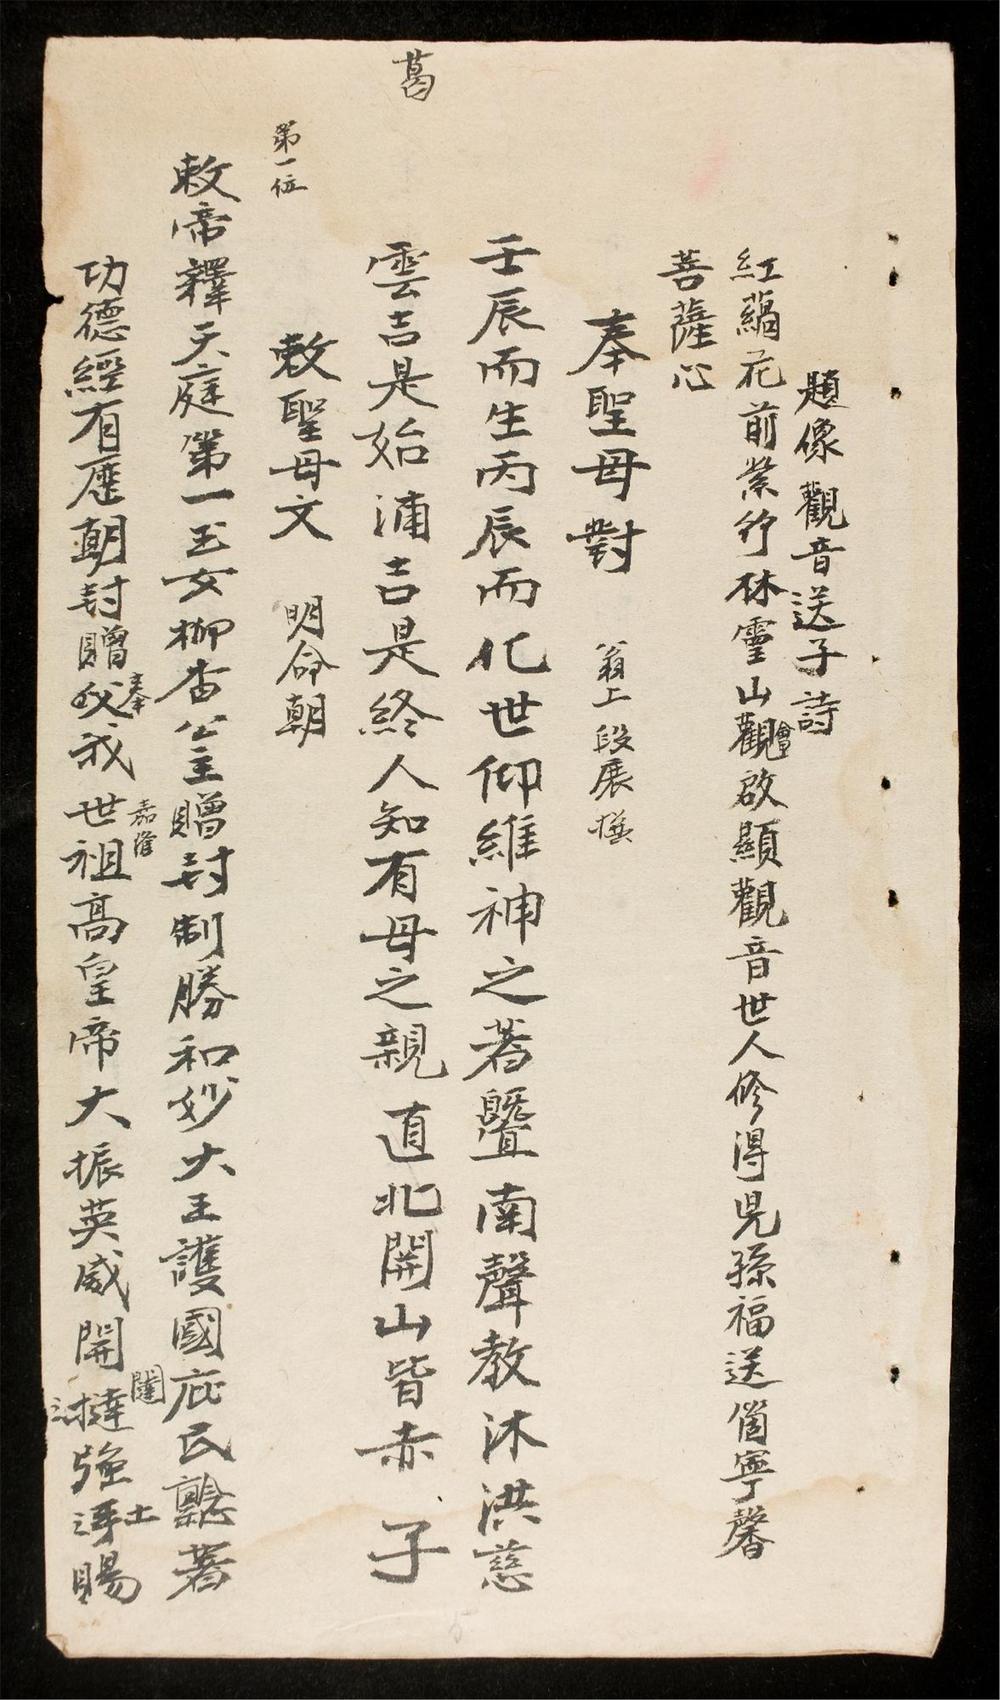 題像觀音送子詩
紅藕花前紫竹林靈山觀會啟顯觀音世人修得児孫福送個寧馨
菩薩心
奉聖母對 翁上段展撰
壬辰而生丙辰而化世仰維神之著曁南聲教沐洪慈
雲吉是始浦吉是終人知有母之親直北開山皆赤子
葛
敕聖母文 明命朝
第一位
敕帝釋天庭第一玉女柳杏公主贈封制勝和妙大王護國庇民諗著
功德經有歷朝封贈奉我嘉隆世祖高皇帝大振英威開闥撻強土賜